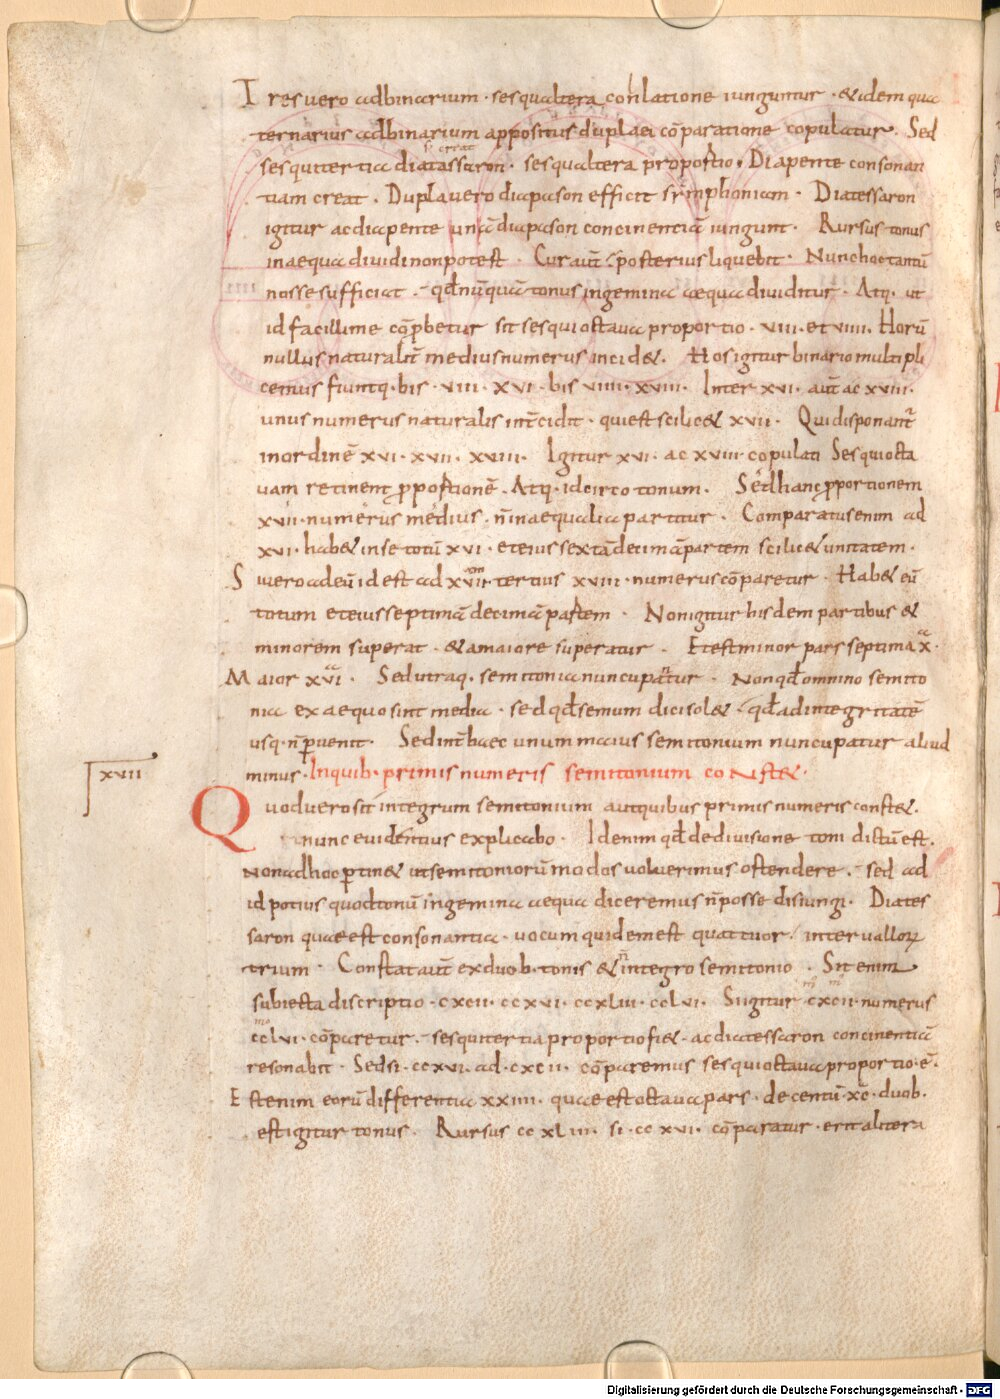 Tres vero ad binarium · sesqualtera conlatione iunguntur · & idem qua
ternarius ad binarium appositus duplaei cōparatione copulatur. Sed
si creat
sesquitertia diatassaron · sesqualtera proportio · Diapente consonan
tiam creat . Dupla vero diapason efficit simphoniam · Diatessaron
igitur ac diapente unā diapason concinentiā iungunt · Rursus tonus
in aequa dividi non potest · Cur aut̄ posterius liquebit · Nunc hoc tantū
nosse sufficiat · qd̄ nūquā tonus in gemina aequa dividitur · Atq· ut
id facillime cōp̄betur sit sesquioctava proportio · viii · et viiii · Horū
nullus naturalit̄ medius numerus incid& . Hos igitur binario multipli
cemus fiuntq· bis · viii · xvi · bis viiii · xviii · Inter xvi · aut̄ ac xviii ·
unus numerus naturalis int̄cidit · qui est scilic& xvii · Qui disponant̄
in ordinē xvi · xvii · xviii · Igitur xvi · ac xviii · copulati Sesquiocta
uam retinent p̱portionē · Atq· idcirco tonum · Sed hanc p̱portionem
xvii · numerus medius · n̄ in aequalia partitur · Comparatus enim ad
xvi · hab& in se totū xvi · et eius sextā decimā partem scilic& unitatem ·
Si uero ad eū id est ad xvii tertius xviii · numerus cōparetur · Hab& eū
totum et eius septimā decimā partem · Non igitur hisdem partibus &
minorem superat · & a maiore superatur · Et est minor pars septima x ·
Maior xvi · Sed utraq· semitonia nuncupantur · Non qd̄ omnino semito
nia ex aequo sint media · sed qd̄ semum dici sol& · qd̄ ad integritatē
usq· n̄ p̱venit · Sed int̄ haec unum maius semitonium nuncupatur aliud
minus · In quib· primis numeris semitonium const& ·
xvii
Quod vero sit integrum semitonium aut quibus primis numeris const& ·
nunc evidentius explicabo · Id enim qd̄ de divisione toni dictū est ·
non ad hoc p̱tin& ut semitoniorū modos voluerimus ostendere · sed ad
id potius quod tonū in gemina aequa diceremus n̄ posse disiungi · Diates
saron quae est consonantia · vocum quidem est quattuor · intervallorꝝ
trium · Constat aut̄ ex duob· tonis & n̄ integro semitonio · Sit enim
subiecta discriptio · cxcii · ccxvi · ccxliii · cclvi · Si igitur cxcii · numerus
cclvi · cōparetur · sesquitertia proportio fi& · ac diatessaron concinentiā
resonabit · Sed si · ccxvi · ad · cxcii · cōparemus sesquioctava proportio · ē ·
Est enim eorū differentia xxiiii · quae est octava pars · de centū · xc · duob·
est igitur tonus · Rursus ccxliii · si · ccxvi · cōparatur · erit altera
Digitalisierung gefördert durch die Deutsche Forschungsgemeinschaft - DFG